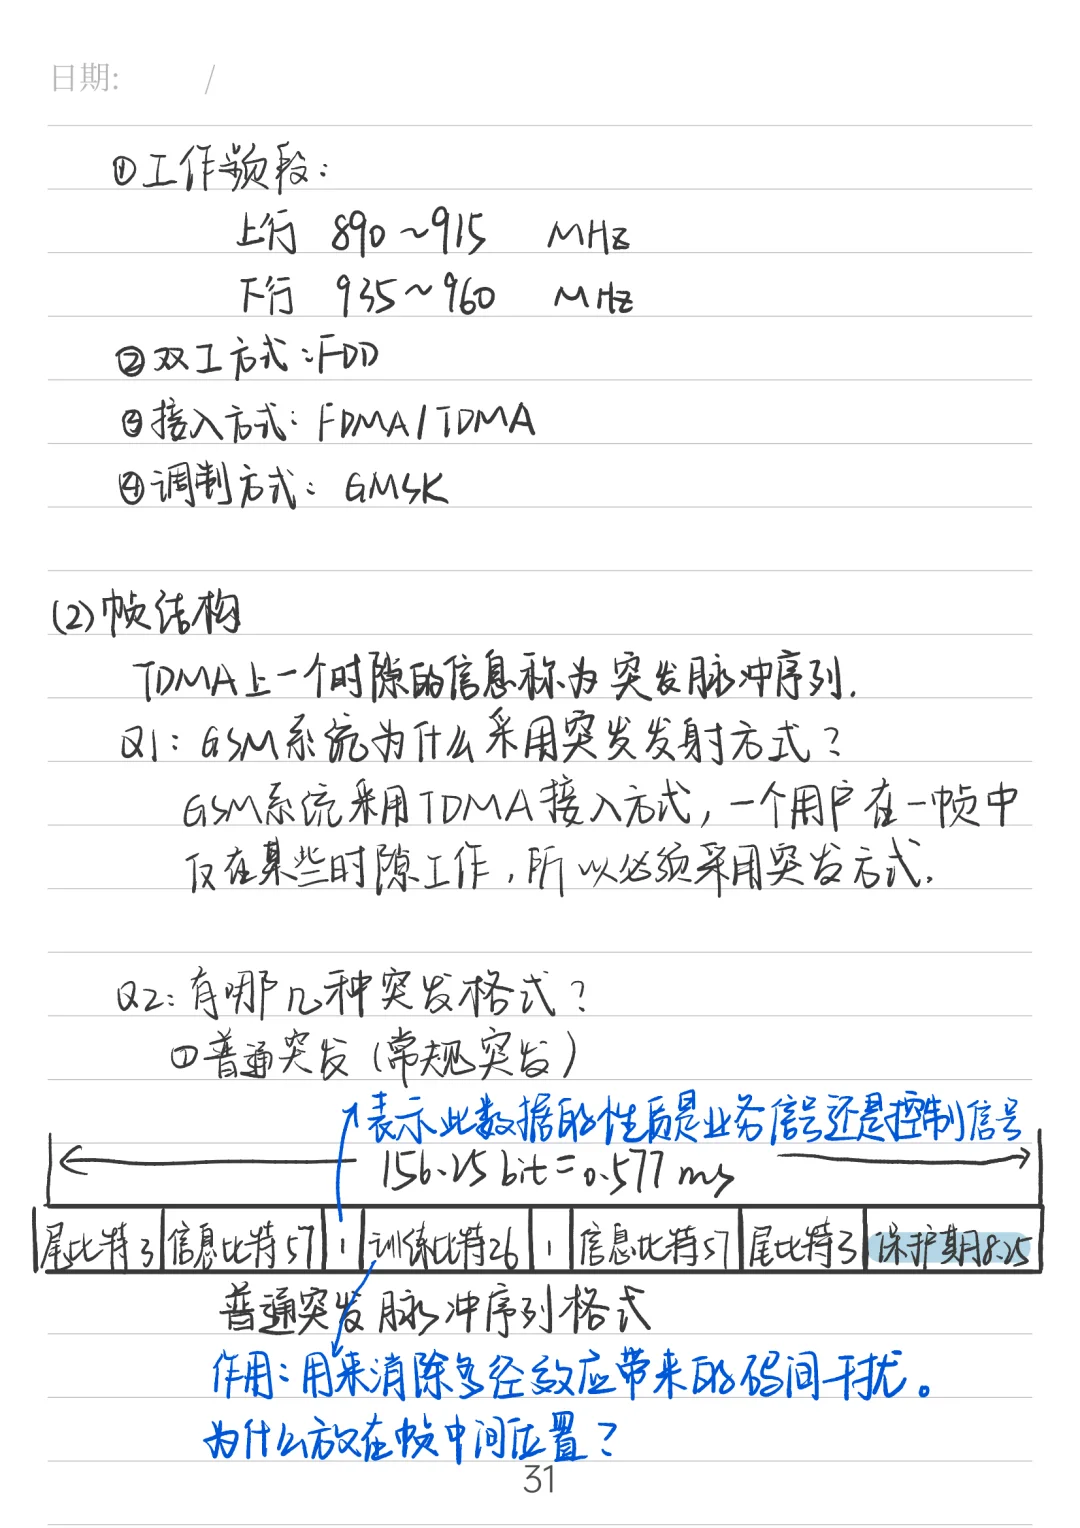 日期: /
①工作频段:
上行 890~915 MHz
下行 935~960 MHz
②双工方式:FDD
③接入方式: FDMA/TDMA
④调制方式: GMSK
(2)帧结构
TDMA上一个时隙的信息称为突发脉冲序列.
Q1: GSM系统为什么采用突发发射方式?
GSM系统采用TDMA接入方式,一个用户在一帧中
仅在某些时隙工作,所以必须采用突发方式.
Q2:有哪几种突发格式?
①普通突发(常规突发)
表示此数据的性质是业务信号还是控制信号
156.25 bit=0.577 ms
尾比特3 信息比特57 1 训练比特26 1 信息比特57 尾比特3 保护期8.25
普通突发脉冲序列格式
作用:用来消除多径效应带来的码间干扰。
为什么放在帧中间位置?
31